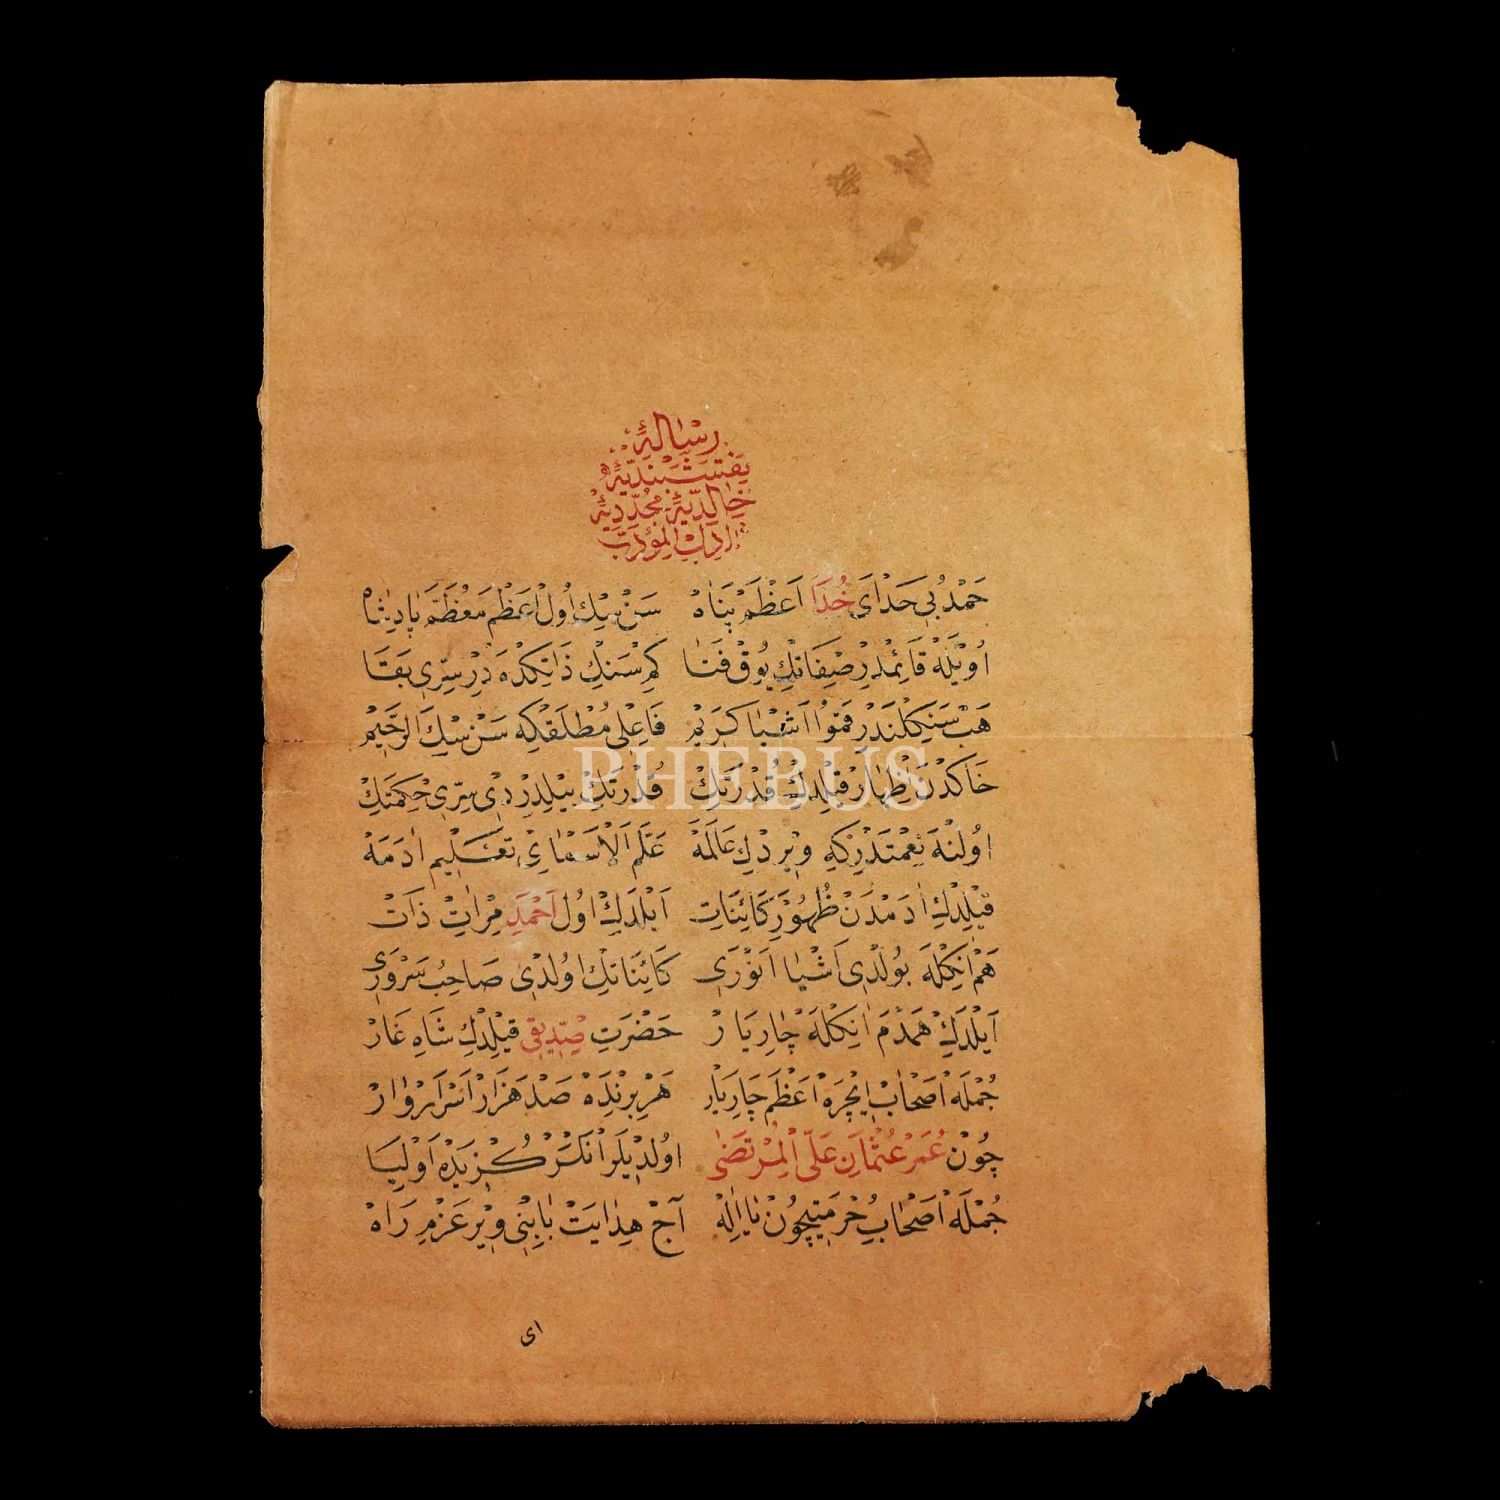 رسالۀ
نقشبنديۀ
خالديۀ مجدديۀ
ادب المؤدب
حمد بي حداى خدا اعظم پناه سن سك اول اعظم معظم پادشاه
اويله قائمدر صفاتك يوق فنا كم سنك ذاتكده در سرى بقا
هب سنكلندر قموا اشيا كريم فاعلى مطلقكه سن سك الرحيم
خاكدن اظهار قيلدك قدرتك قدرتك بيلدردى سرى حكمتك
اولنه نعمتدركه ويردك عالمه علم الاسماى تعليم ادمه
قيلدك ادمدن ظهور كائنات ايلدك اول احمد مرات ذات
هم انكله بولدى اشيا انورى كائناتك اولدى صاحب سرورى
ايلدك همدم انكله چار يار حضرت صديقى قيلدك شاه غار
جمله اصحاب ايچره اعظم چار يار هر برنده صد هزار اسرار وار
چون عمر عثمان على المرتضى اولديلر انكز كزيده اوليا
جمله اصحاب حرمتيچون يا اله آچ هدايت بابنى وير عزم راه
اى
PHEBUS